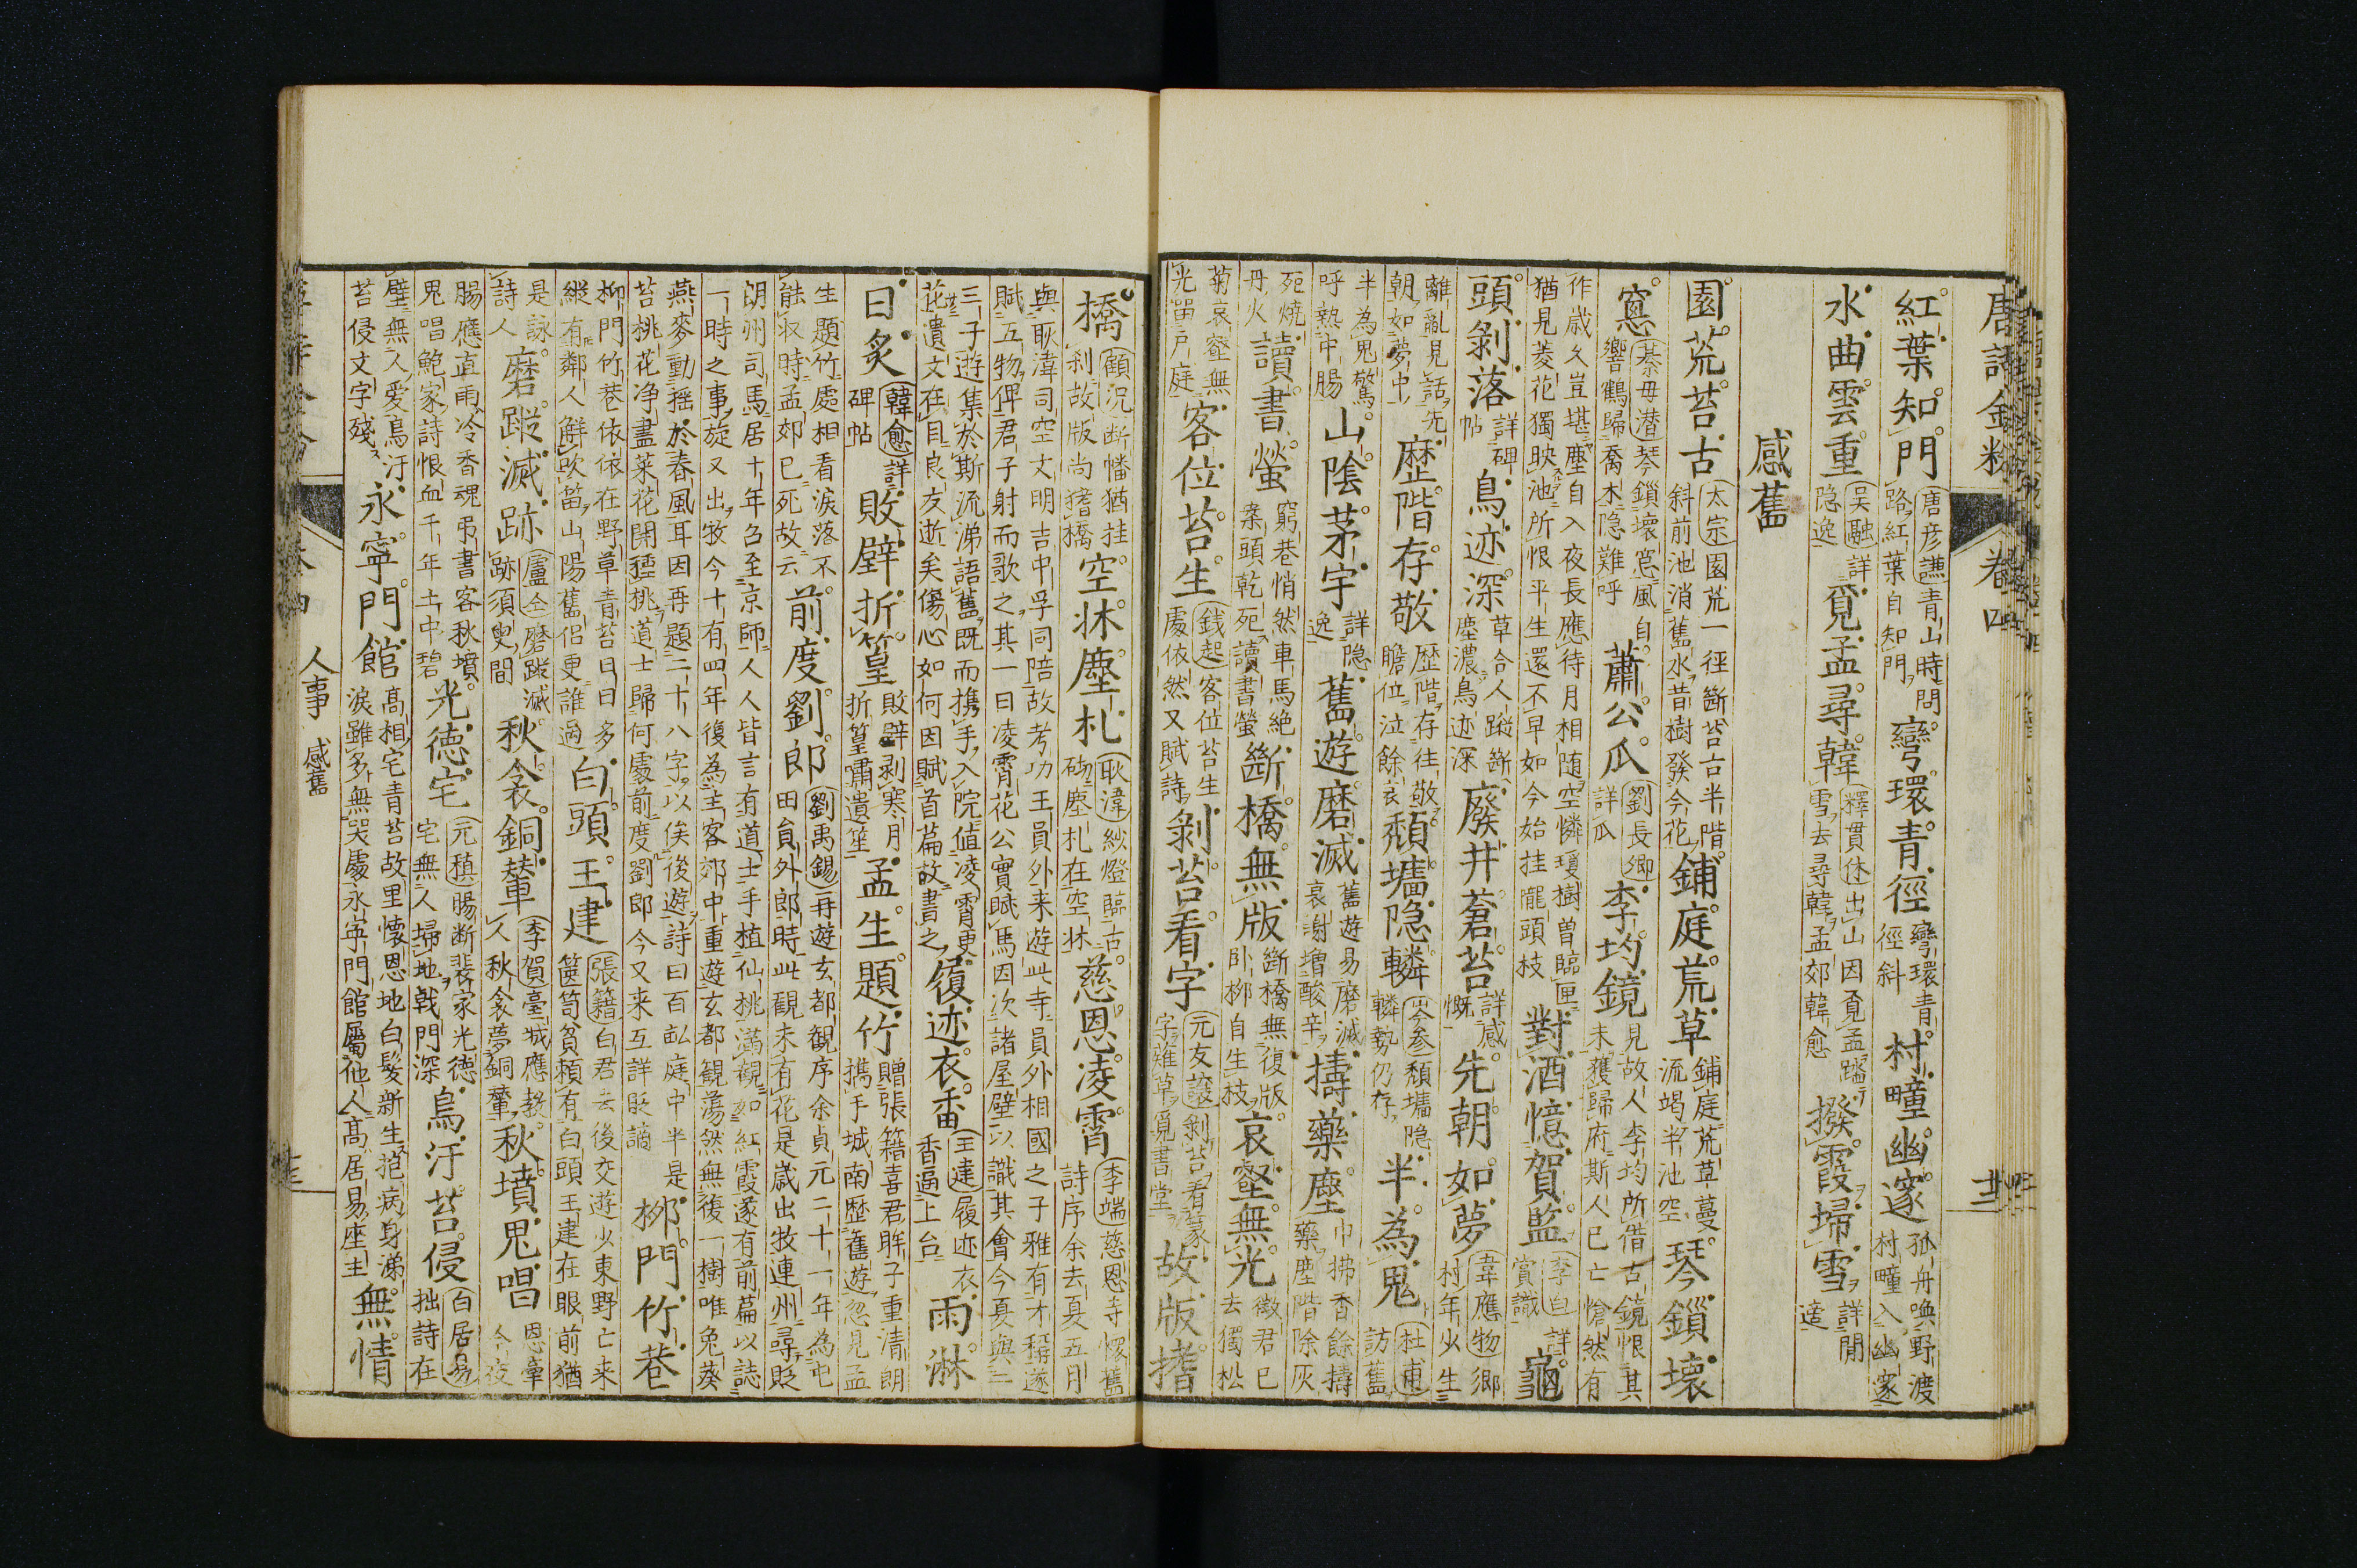 唐詩金粉 卷四 廿三
紅葉知門 唐彦謙 青山時問路紅葉自知門 彎環青徑 彎環青徑斜 村疃幽邃 孤舟喚野渡村疃入幽邃
水曲雲重 吳融 詳隐逸 覓孟尋韓 釋貫休 出山因覓孟踏雪去尋韓 孟郊韓愈 撥霞埽雪 詳閒適
感舊
園荒苔古 太宗 園荒一徑斷苔古半階斜前池消舊水昔樹發今花 鋪庭荒草 鋪庭荒草蔓流竭半池空 琴鎖壞
窓 綦毋潜 琴鎖壞窓風自響鶴歸喬木隐難呼 蕭公瓜 劉長卿 詳瓜 李均鏡 見故人李均所借古鏡恨其未獲歸府斯人已亡愴然有
作歲久豈堪塵自入夜長應待月相随空憐瓊樹曽臨匣猶見菱花獨映池所恨平生還不早如今始挂隴頭枝 對酒憶賀監 李白 詳賞識 龜
頭剥落 詳碑帖 鳥迹深 草合人蹤斷塵濃鳥迹深 廢井蒼苔 詳感慨 先朝如夢 韋應物 鄉村年少生
離亂見話先朝如夢中 歴階存敬 歴階存往敬瞻位泣餘哀 頽墉隐轔 岑参 頽墉隐轔勢仍存 半為鬼 杜甫 訪舊
半為鬼驚呼熱中腸 山陰茅宇 詳隐逸 舊遊磨滅 舊遊易磨滅哀謝增酸辛 擣藥塵 巾拂香餘擣藥塵階除灰
死燒丹火 讀書螢 窮巷悄然車馬絶案頭乾死讀書螢 斷橋無版 斷橋無復版卧栁自生枝 哀壑無光 徵君已去獨松
菊哀壑無光留戶庭 客位苔生 錢起 客位苔生處依然又賦詩 剥苔看字 元友讓 剥苔看篆字薙草覓書堂 故版揩
橋 顧況 断幡猶挂刹故版尚揩橋 空牀塵札 耿湋 紗燈臨古砌塵札在空牀 慈恩凌霄 李端 慈恩寺懷舊詩序余去夏五月
與耿湋司空文明吉中孚同陪故考功王員外来遊此寺員外相國之子雅有才稱遂賦五物俾君子射而歌之其一曰凌霄花公實賦焉因次諸屋壁以識其會今夏與二
三子遊集於斯流涕語舊既而携手入院值凌霄更花遺文在目良友逝矣傷心如何因賦首篇故書之 履迹衣香 王建 履迹衣香遍上台 雨淋
日炙 韓愈 詳碑帖 敗壁折篁 敗壁剥寒月折篁嘯遺笙 孟生題竹 贈張籍喜君眸子重清朗携手城南歷舊遊忽見孟
生題竹處相看淚落不能収時孟郊已死故云 前度劉郎 劉禹錫 再遊玄都觀序余貞元二十一年為屯田負外郎時此觀未有花是歲出牧連州尋貶
朗州司馬居十年召至京師人人皆言有道士手植仙桃滿觀如紅霞遂有前篇以誌一時之事旋又出牧今十有四年復為主客郎中重遊玄都觀蕩然無復一樹唯兔葵
燕麥動揺於春風耳因再題二十八字以俟後遊詩曰百畝庭中半是苔桃花净盡菜花開種桃道士歸何處前度劉郎今又来互詳貶謫 栁門竹巷
栁門竹巷依依在野草青苔日日多縱有鄰人解吹笛山陽舊侶更誰過 白頭王建 張籍 白君去後交遊少東野亡来篋笥貧頼有白頭王建在眼前猶
是詠詩人 磨蹤滅跡 盧仝 磨蹤滅跡須臾間 秋衾銅輦 李賀 臺城應教人秋衾夢銅輦 秋墳鬼唱 恩牽今夜
腸應直雨冷香魂弔書客秋墳鬼唱鮑家詩恨血千年土中碧 光德宅 元稹 腸断裴家光德宅無人埽地戟門深 烏汙苔侵 白居易 拙詩在
壁無人愛鳥汙苔侵文字殘 永寧門館 髙相宅青苔故里懷恩地白髪新生抱病身涕淚雖多無哭處永寧門館屬他人髙居易座主 無情
人事 感舊